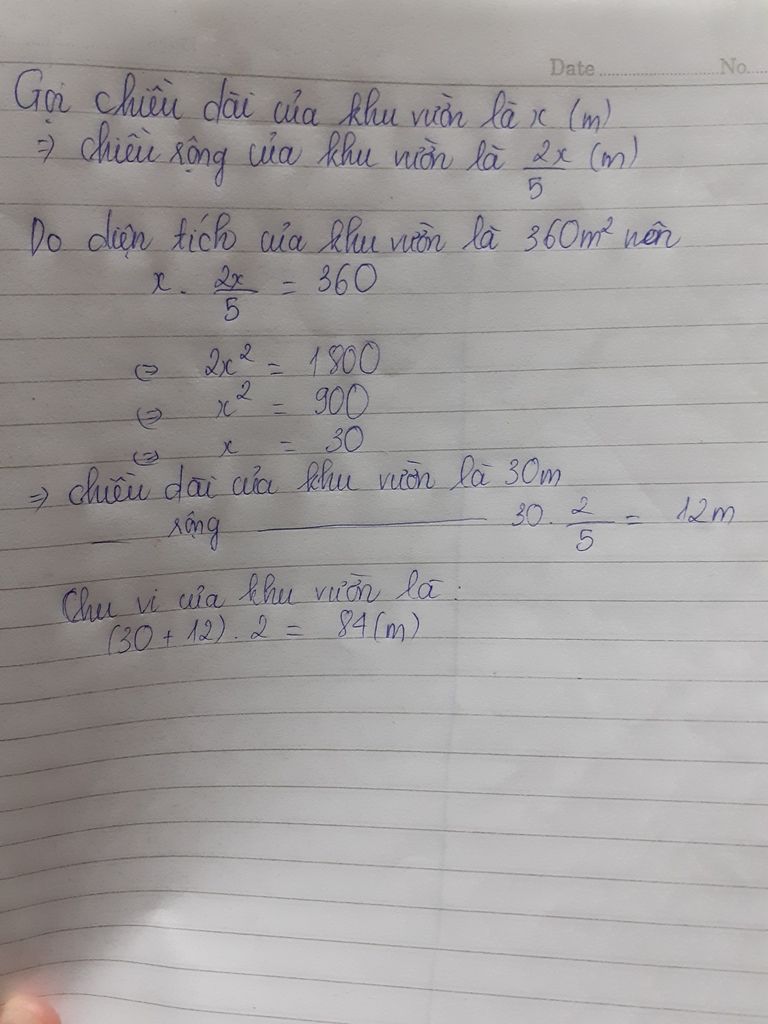 Date ............ No.....
Gọi chiều dài của khu vườn là x (m)
⇒ chiều rộng của khu vườn là 2x/5 (m)
Do diện tích của khu vườn là 360m² nên
x . 2x/5 = 360
⇔ 2x² = 1800
⇔ x² = 900
⇔ x = 30
⇒ chiều dài của khu vườn là 30m
— rộng ———— 30 . 2/5 = 12m
Chu vi của khu vườn là :
(30 + 12) . 2 = 84 (m)